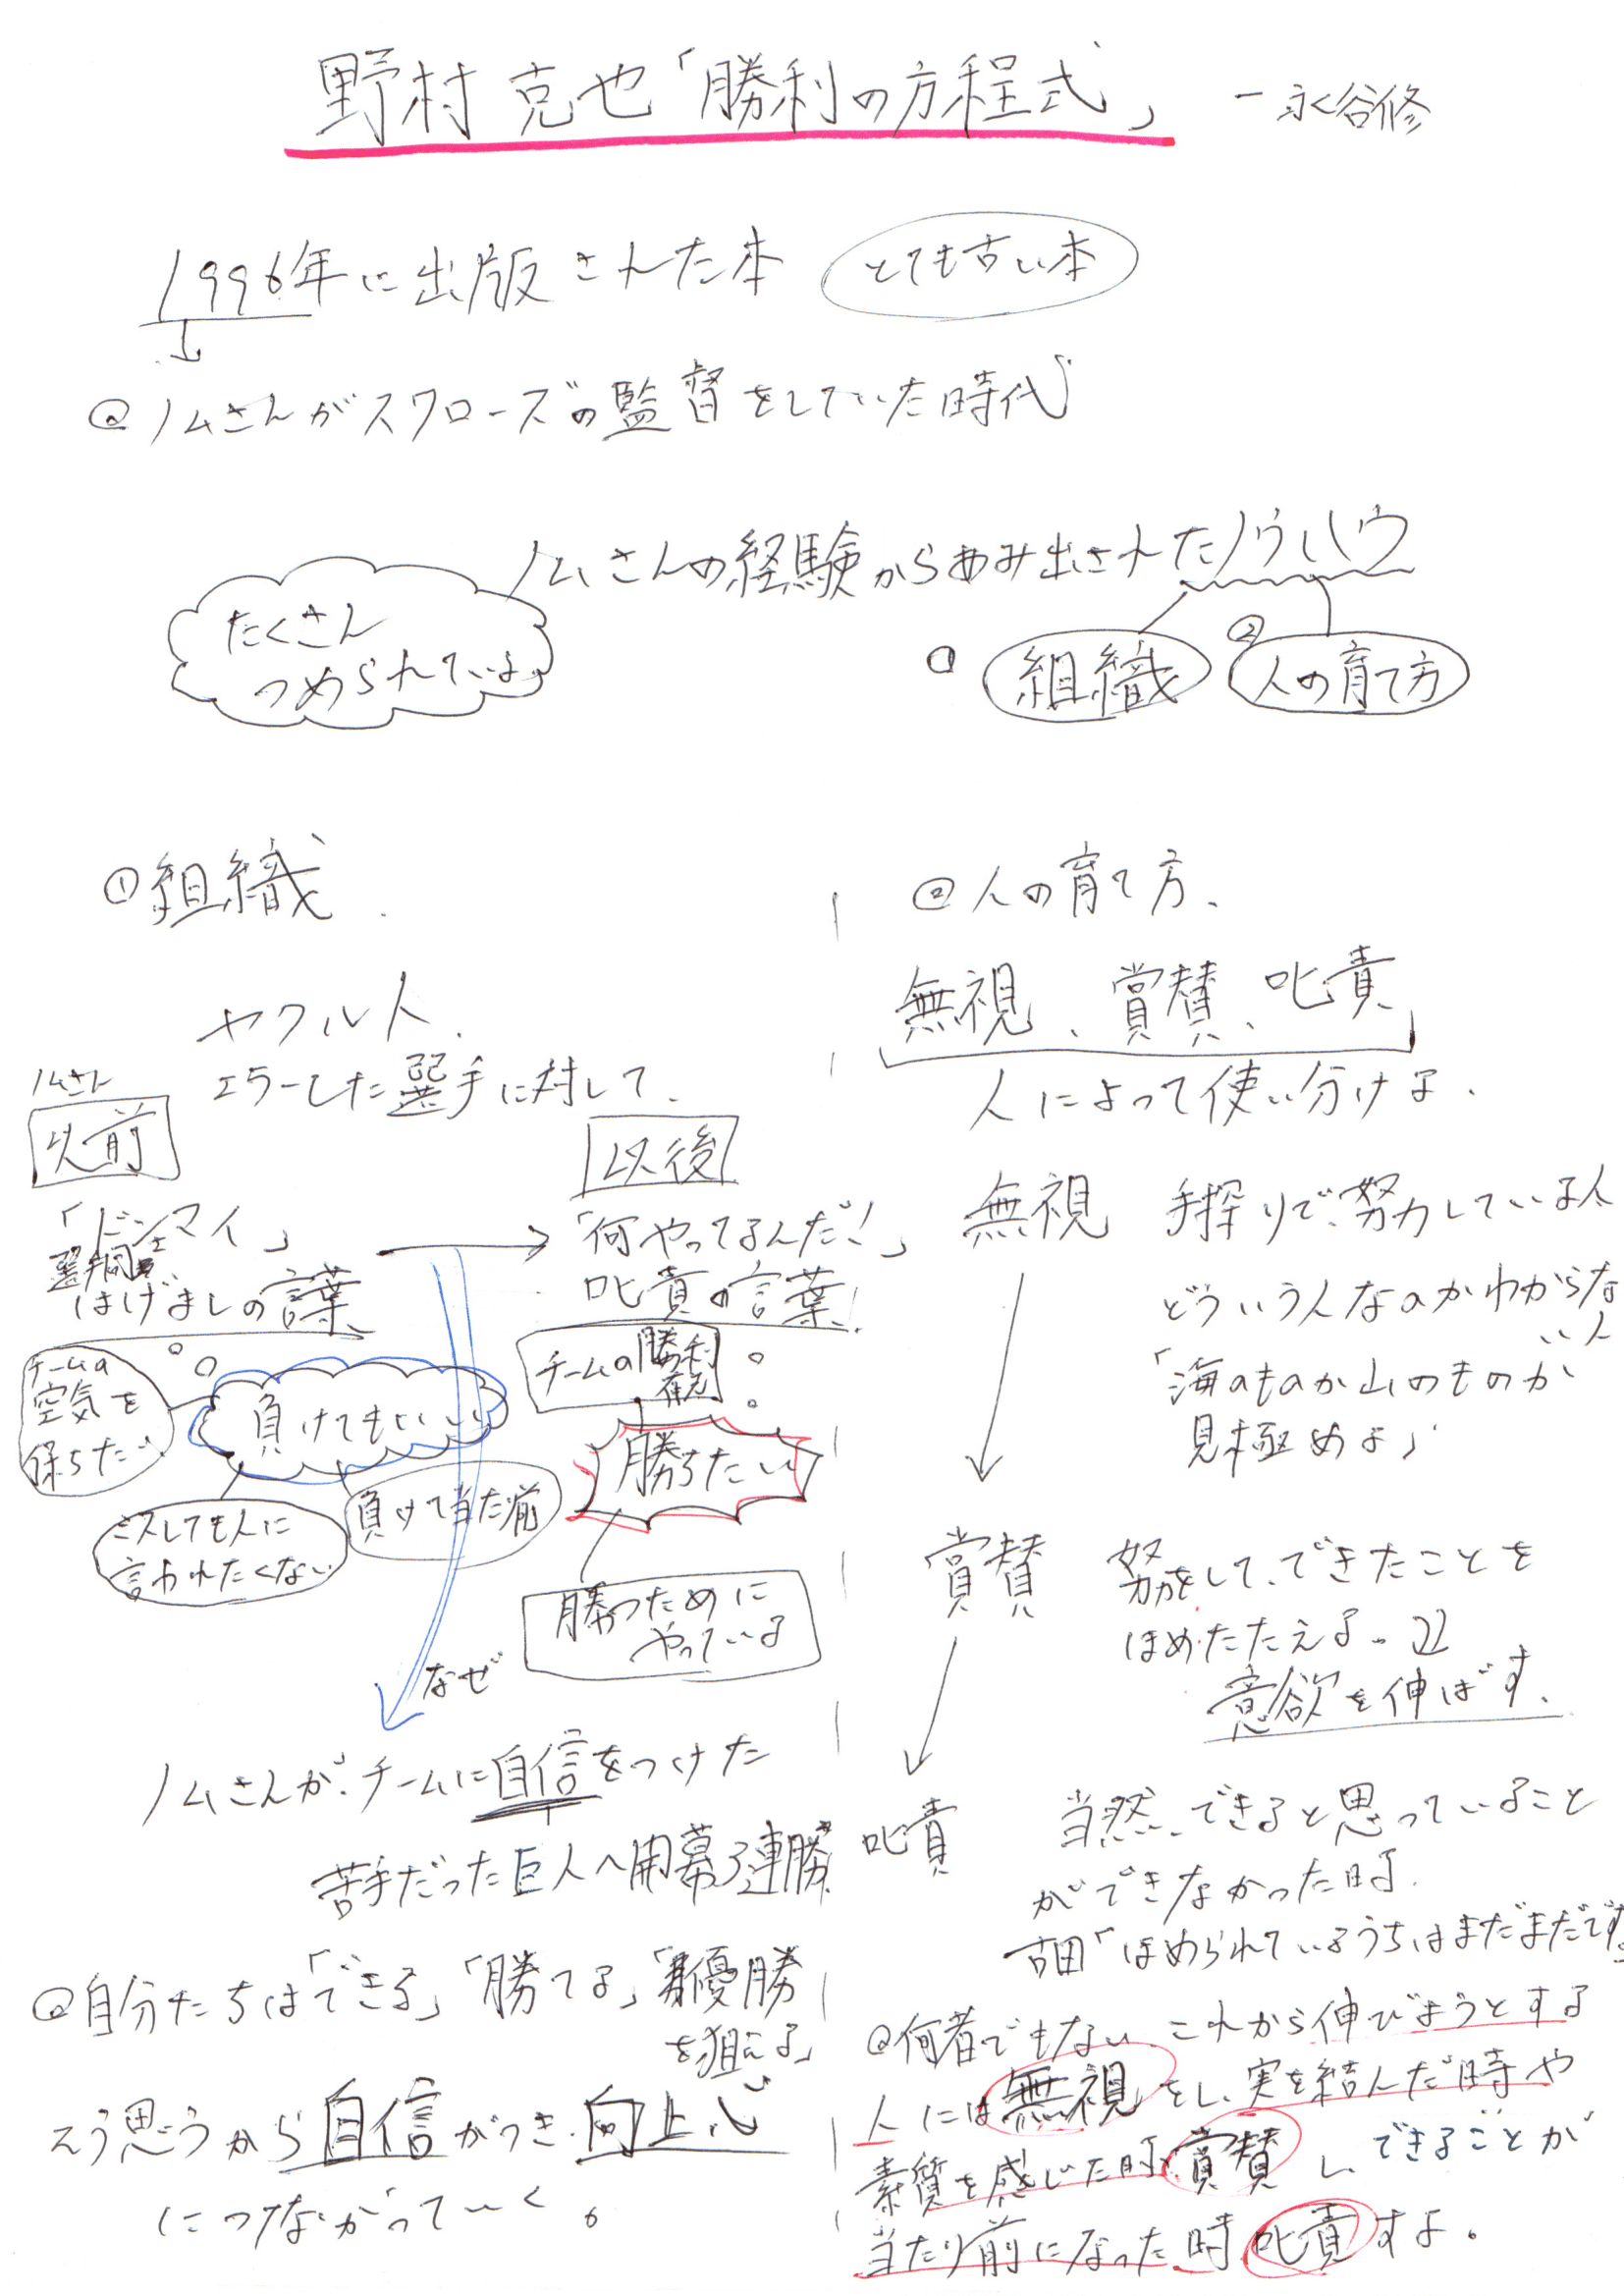 野村克也「勝利の方程式」 ー永谷修
1996年に出版された本 とても古い本
@ノムさんがスワローズの監督をしていた時代
ノムさんの経験からあみ出されたノウハウ
たくさん
つめられている
① 組織 ② 人の育て方
①組織
ヤクルト
エラーした選手に対して、
ノムさん
以前
「ドンマイ」
はげましの言葉
チームの
空気を
保ちたい
負けてもいい
ミスしても人に
言われたくない
負けて当た前
以後
「何やってるんだ！」
叱責の言葉
チームの勝利
勝ちたい
勝つために
やっている
なぜ
ノムさんが、チームに自信をつけた
苦手だった巨人へ開幕3連勝
@自分たちは「できる」「勝てる」「優勝
を狙える」
そう思うから自信がつき、向上心
につながっていく。
②人の育て方、
無視、賞賛、叱責
人によって使い分ける、
無視 手探りで、努力している人
どういう人なのかわからな
い人
「海のものか山のものか
見極めよ」
賞賛 努力をして、できたことを
ほめたたえる。
意欲を伸ばす、
叱責 当然、できると思っていること
ができなかった時、
古田「ほめられているうちはまだまだです」
@何者でもない、これから伸びようとする
人には無視をし、実を結んだ時や
素質を感じた時、賞賛し、できることが
当たり前になった時、叱責する。